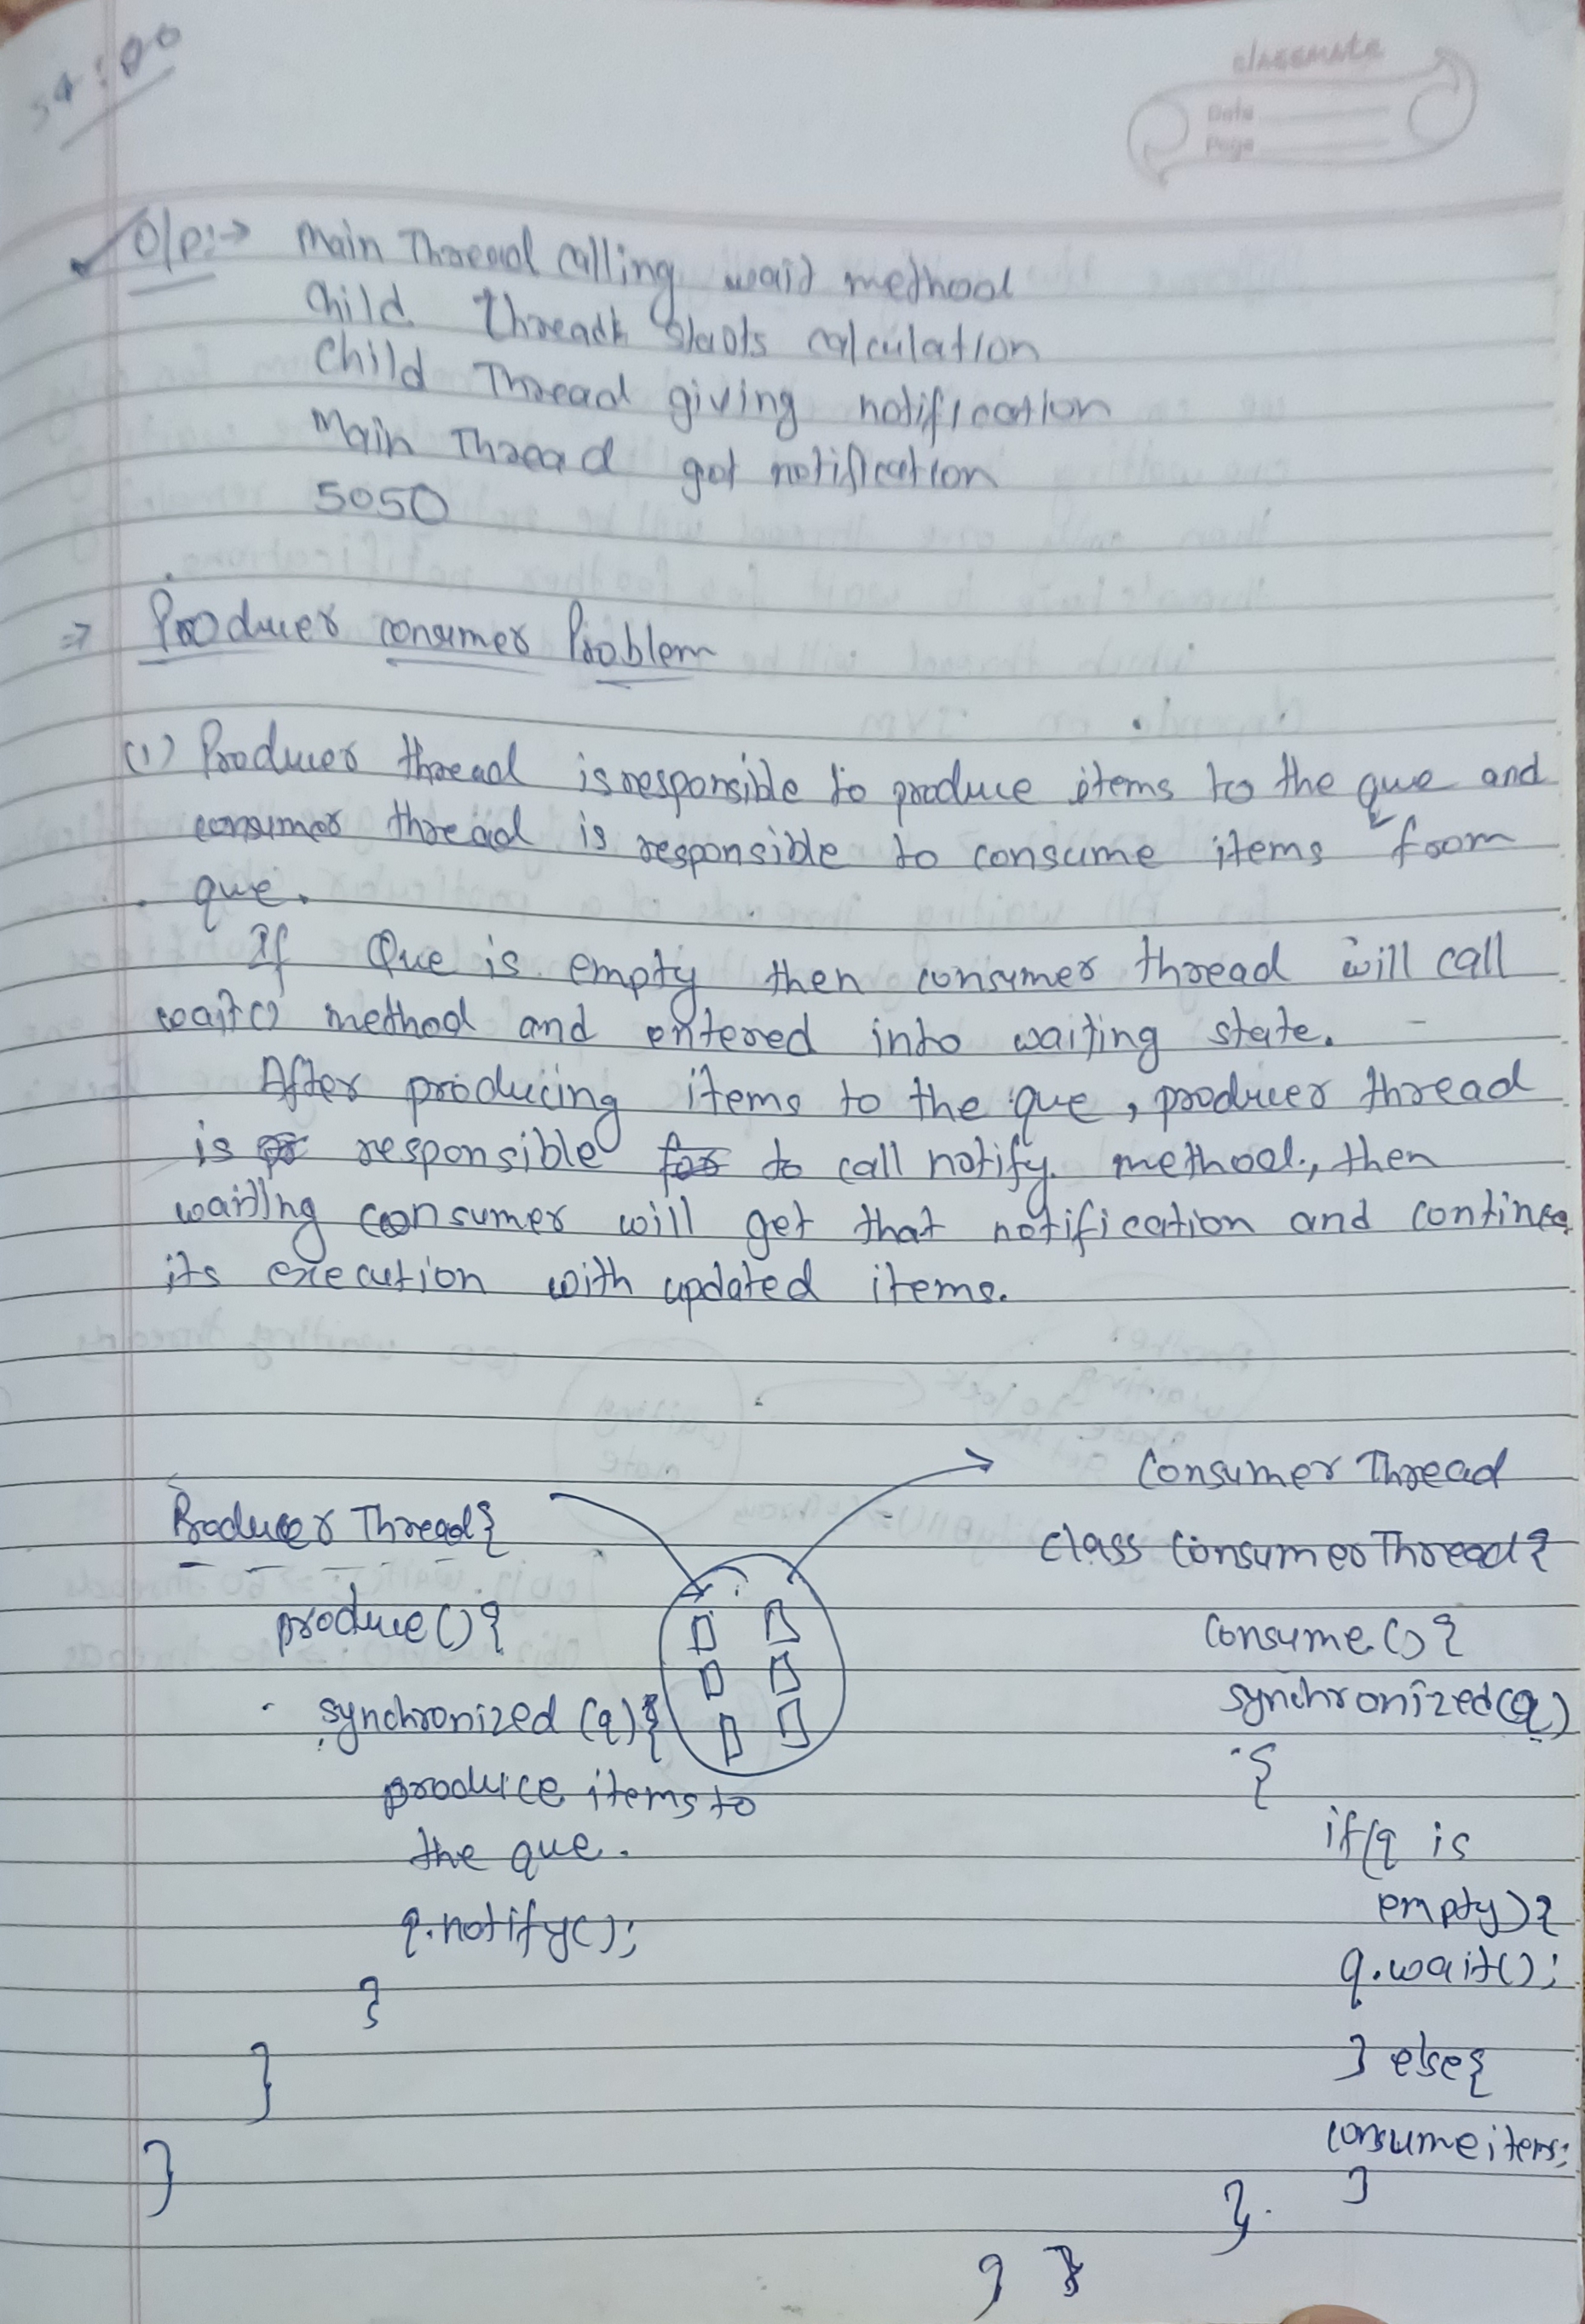 54:00
classmate
Date
Page
O/p:→ Main Thread calling wait method
Child Thread starts calculation
Child Thread giving notification
Main Thread got notification
5050
⇒ Producer consumer Problem
(1) Producer thread is responsible to produce items to the que and
consumer thread is responsible to consume items from
que.
If Que is empty then consumer thread will call
wait() method and entered into waiting state.
After producing items to the que, producer thread
is responsible for to call notify method, then
waiting consumer will get that notification and continue
its execution with updated items.
Producer Thread{
produce(){
synchronized (q){
produce items to
the que.
q.notify();
}
}
}
Consumer Thread
class ConsumerThread{
consume(){
synchronized(q)
{
if(q is
empty){
q.wait();
} else{
consume items;
}
}
}